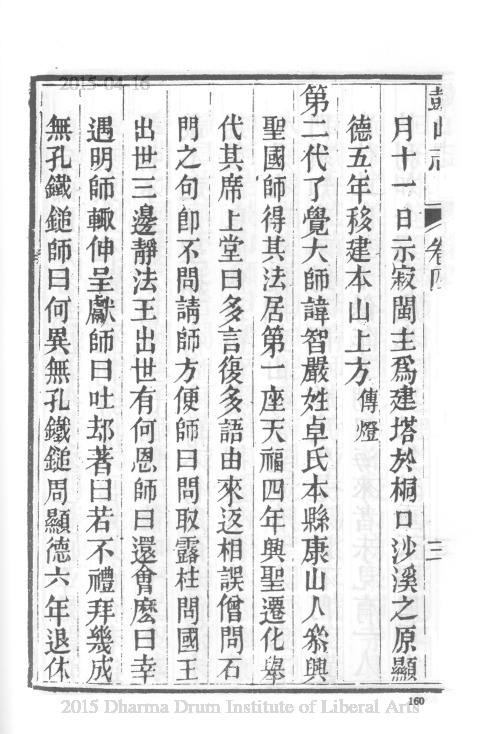 2015-04-16
鼓山志
卷四
三
月十一日示寂閩主爲建塔於桐口沙溪之原顯
德五年移建本山上方傳燈
第二代了覺大師諱智嚴姓卓氏本縣康山人叅興
聖國師得其法居第一座天福四年興聖遷化舉
代其席上堂曰多言復多語由來返相誤僧問石
門之句卽不問請師方便師曰問取露柱問國王
出世三邊靜法王出世有何恩師曰還會麽曰幸
遇明師輙伸呈獻師曰吐却著曰若不禮拜幾成
無孔鐵鎚師曰何異無孔鐵鎚周顯德六年退休
160
2015 Dharma Drum Institute of Liberal Arts